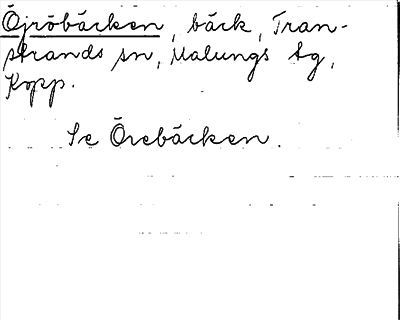 Öjröbäcken, bäck, Tran-
strands sn, Malungs tg,
Kopp.
Se Örebäcken.